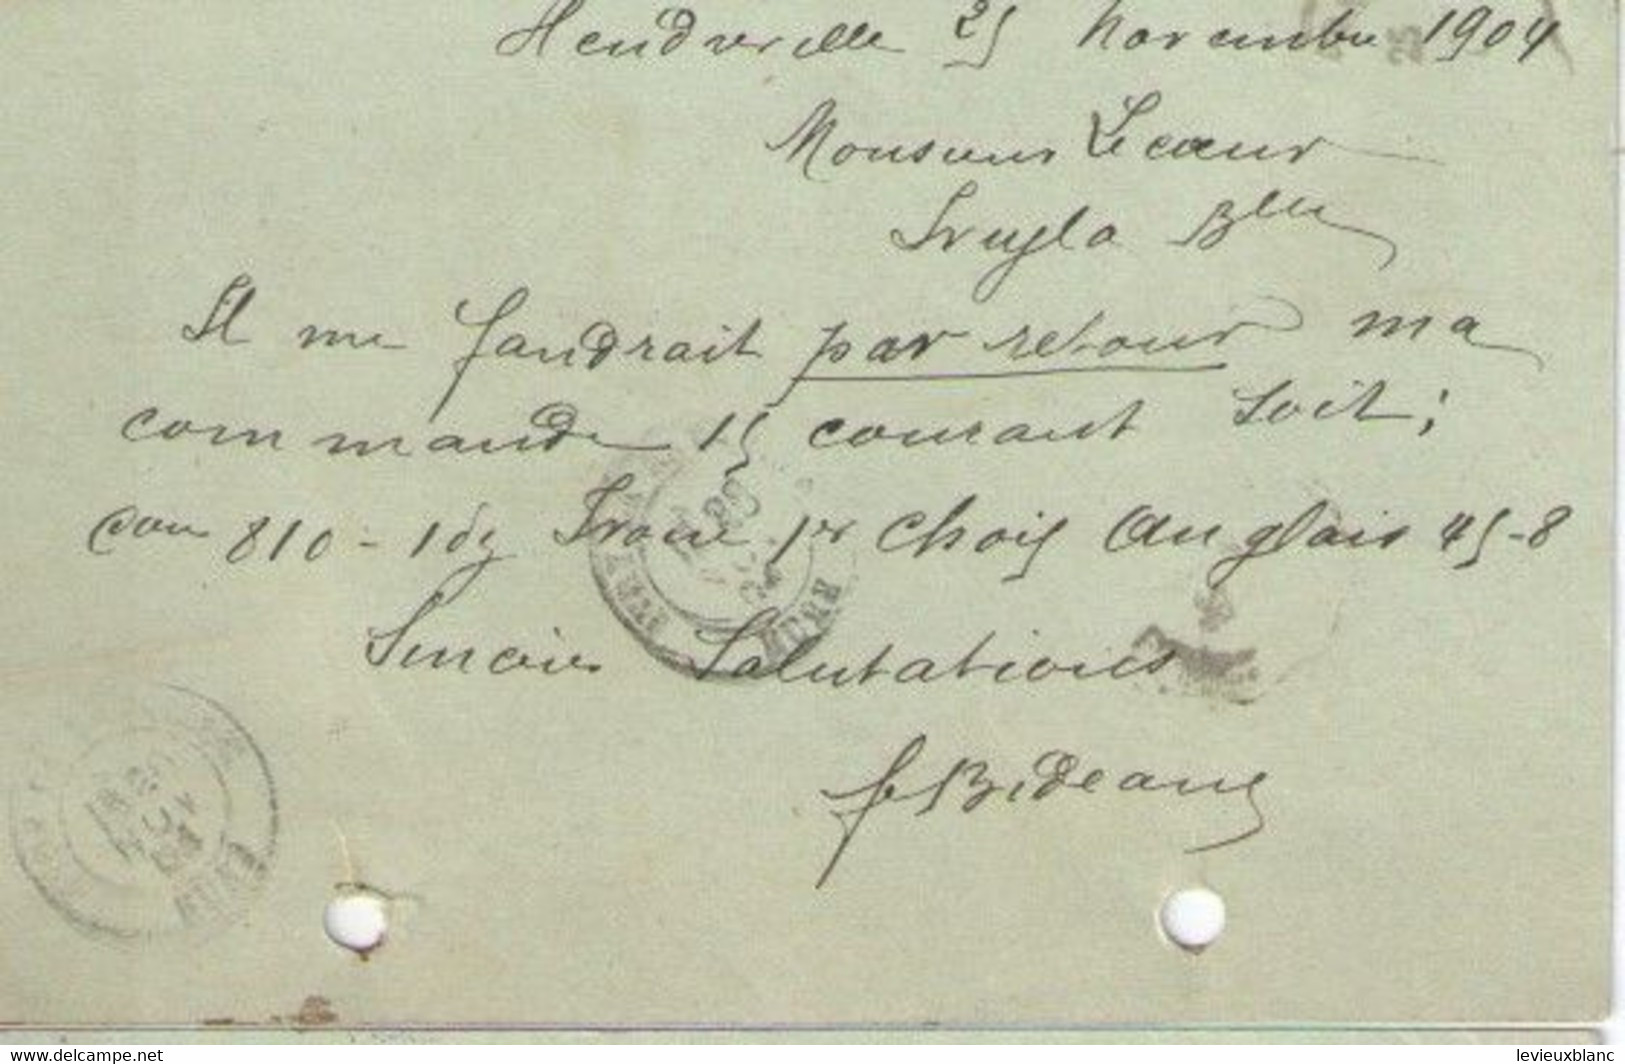 Heudreville 25 Novembre 1904
Monsieur Lecoeur
Il me faudrait par retour ma
commande 15 courant soit;
810 - 1 dz 1er choix Anglais 45-8
Sincères Salutations
Bideaux
EURE
EURE
www.delcampe.net
levieuxblanc